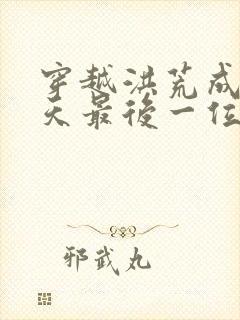 穿越洪荒成
天最後一位
邪武丸